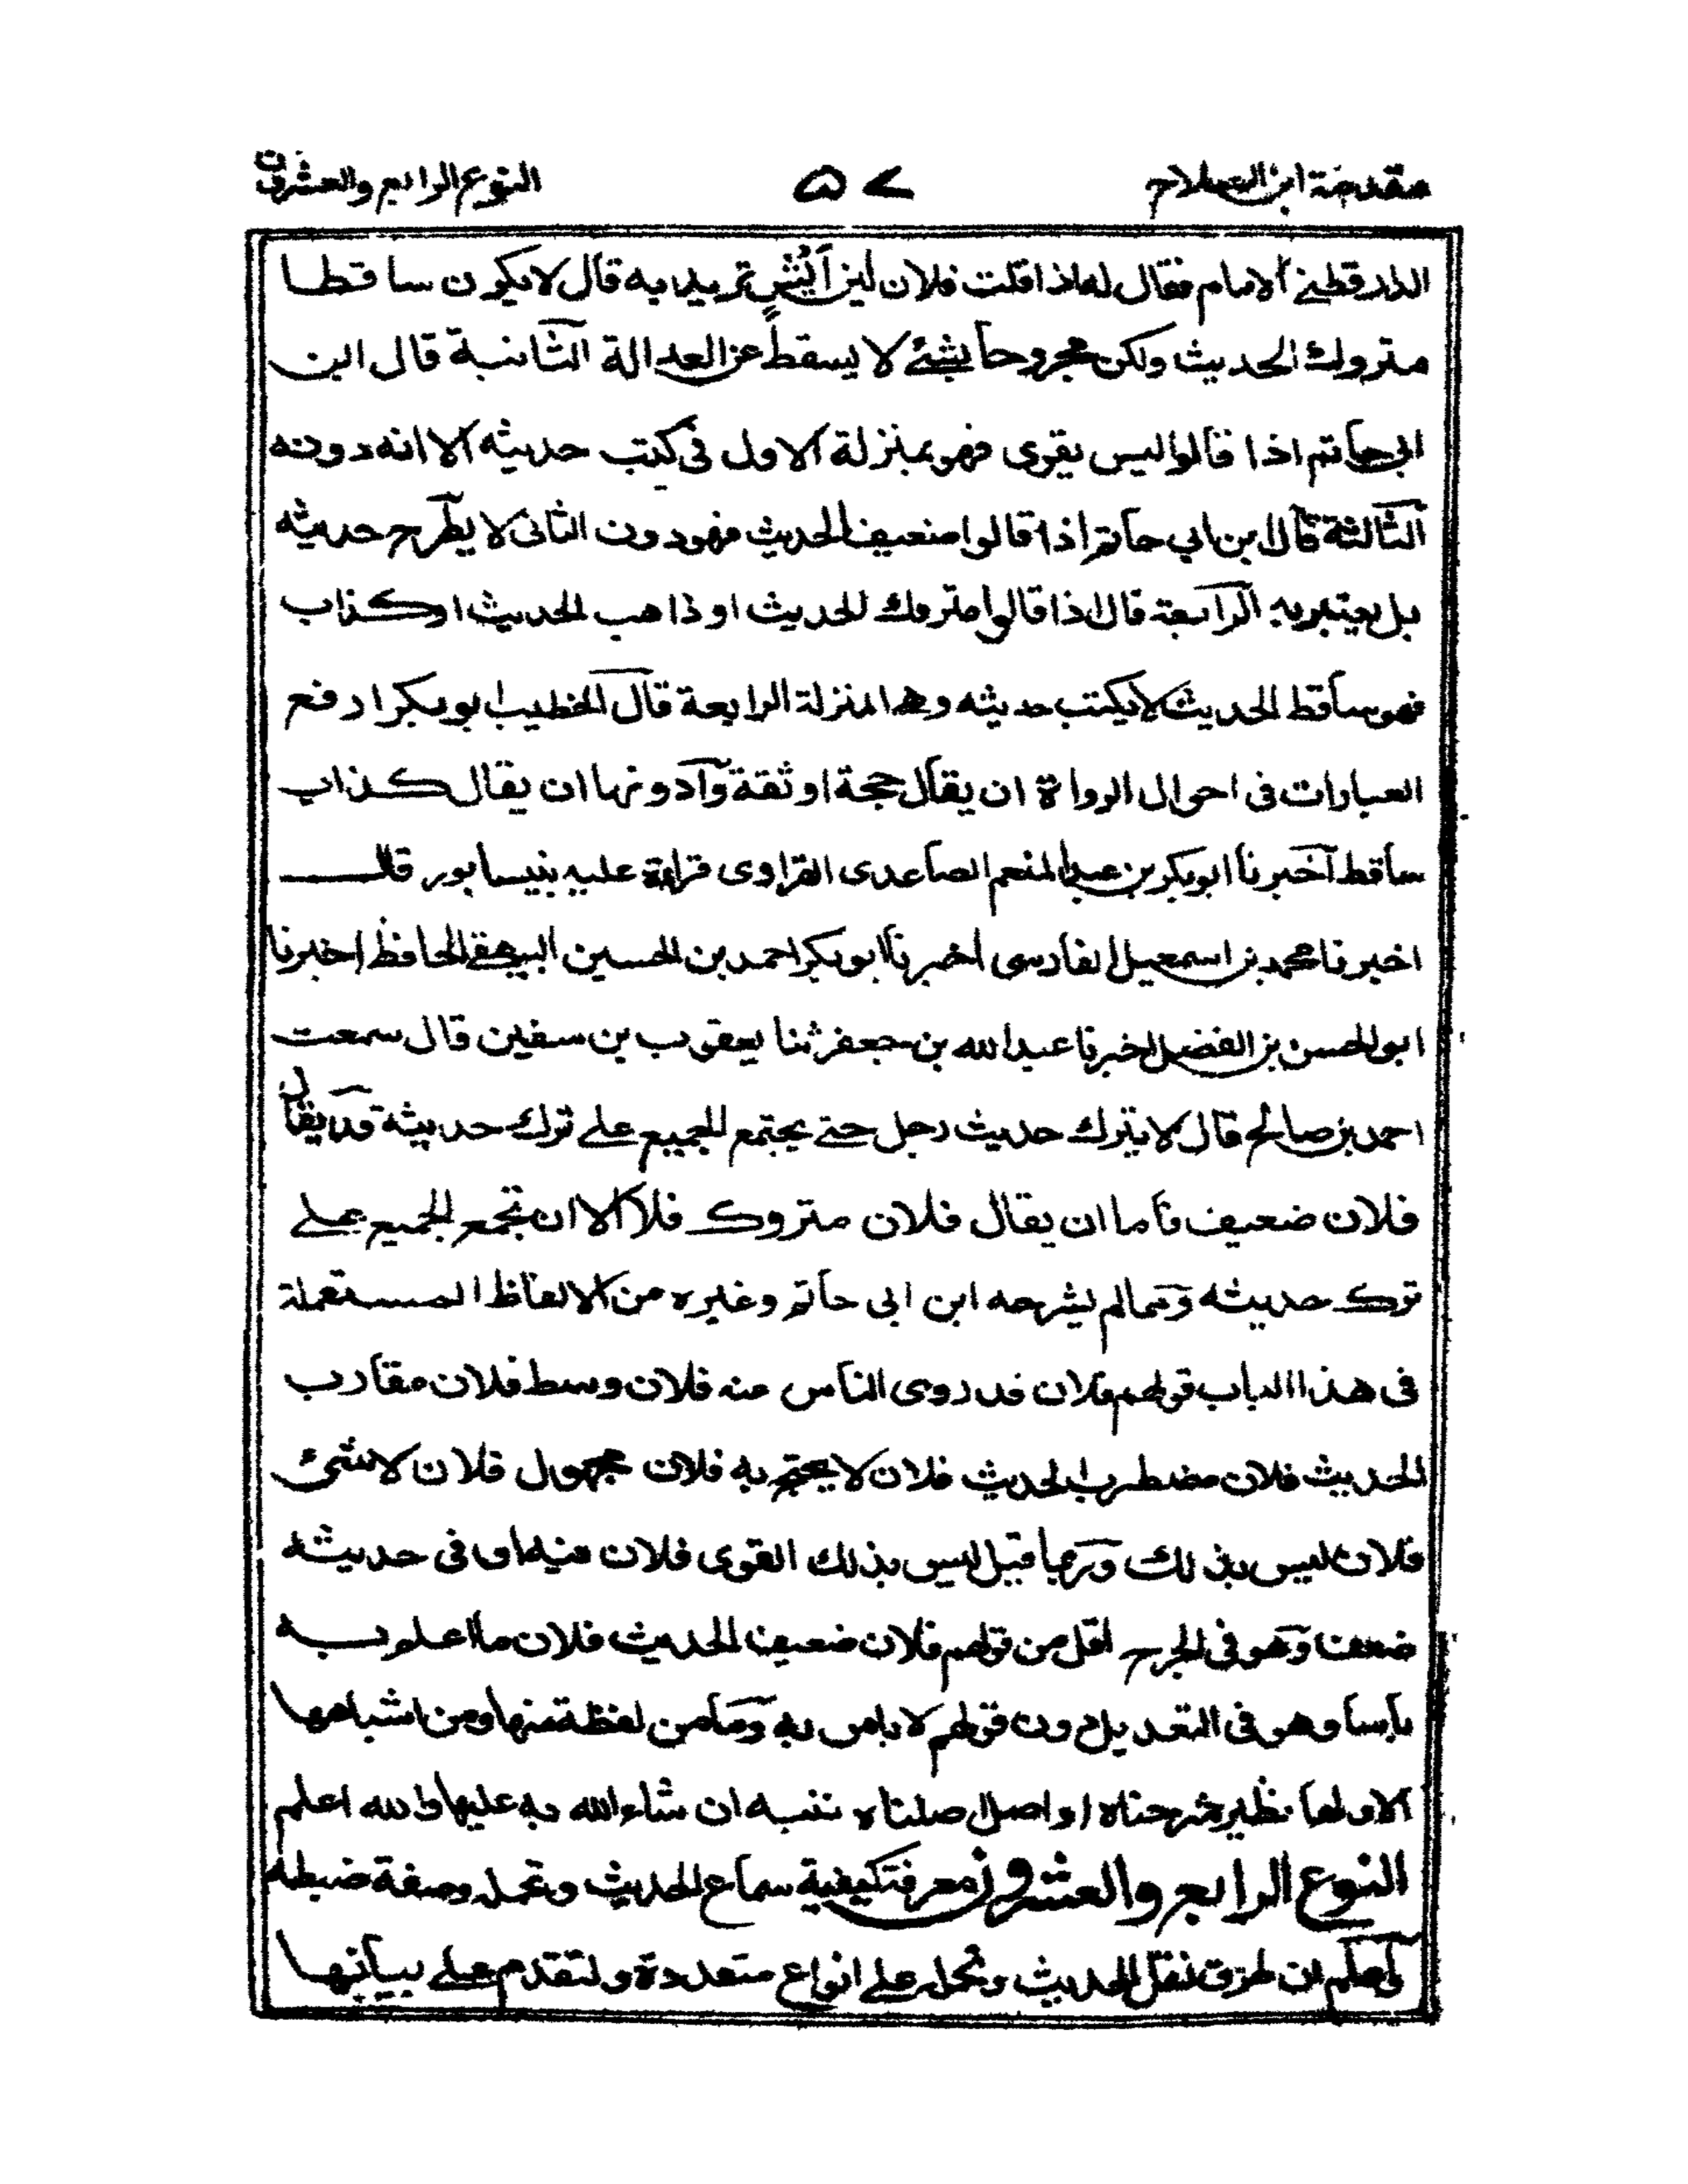 مقدمة ابن الصلاح ۵۷ النوع الرابع والعشرون
الدارقطني الامام فقال له اذا قلت فلان لين أيش تريد به قال لا يكون ساقطا
متروك الحديث ولكن مجروحا بشئ لا يسقط عن العدالة الثانية قال ابن
ابي حاتم اذا قالوا ليس بقوى فهو بمنزلة الاول فى كتب حديثه الا انه دونه
الثالثة قال ابن ابي حاتم اذا قالوا ضعيف الحديث فهو دون الثانى لا يطرح حديثه
بل يعتبر به الرابعة قال اذا قالوا متروك الحديث او ذاهب الحديث او كذاب
فهو ساقط الحديث لا يكتب حديثه وهى المنزلة الرابعة قال الخطيب ابو بكر ارفع
العبارات فى احوال الرواة ان يقال حجة او ثقة وادونها ان يقال كذاب
ساقط آخبرنا ابو بكر بن عبد المنعم الصاعدى الفراوى قراءة عليه بنيسابور قال
اخبرنا محمد بن اسمعيل الفارسى اخبرنا ابو بكر احمد بن الحسين البيهقى الحافظ اخبرنا
ابو الحسن بن الفضل اخبرنا عبد الله بن جعفر ثنا يعقوب بن سفين قال سمعت
احمد بن صالح قال لا يترك حديث رجل حتى يجتمع الجميع على ترك حديثه قد يقال
فلان ضعيف فاما ان يقال فلان متروك فلا الا ان تجمع الجميع على
ترك حديثه ومما لم يشرحه ابن ابى حاتم وغيره من الالفاظ المستعملة
فى هذا الباب قولهم فلان قد روى الناس عنه فلان وسط فلان مقارب
الحديث فلان مضطرب الحديث فلان لا يحتج به فلان مجهول فلان لا شئ
فلان ليس بذلك وربما قيل ليس بذلك القوى فلان فيه او فى حديثه
ضعف وهو فى الجرح اقل من قولهم فلان ضعيف الحديث فلان ما اعلم به
بأسا وهو فى التعديل دون قولهم لا باس به وما من لفظة منها ومن اشباهها
الا ولها نظير شرحناه او اصل اصلناه ننبه ان شاء الله به عليها والله اعلم
النوع الرابع والعشرون معرفة كيفية سماع الحديث وتحمله وصفة ضبطه
اعلم ان طرق نقل الحديث وتحمله على انواع متعددة ولنقدم على بيانها